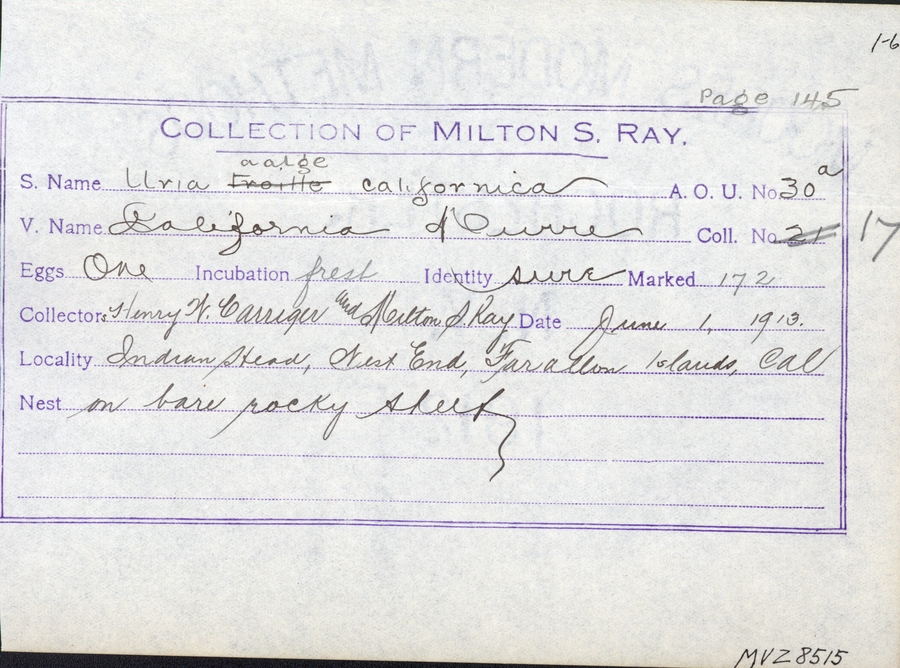 1-6
Page 145
COLLECTION OF MILTON S. RAY.
aalge
S. Name Uria Troille californica A. O. U. No. 30a
V. Name California Murre Coll. No. 21 17
Eggs One Incubation fresh Identity sure Marked 172
Collectors Henry W. Carriger and Milton S Ray Date June 1, 1913.
Locality Indian Head, West End, Farallon Islands, Cal
Nest on bare rocky shelf
MVZ 8515